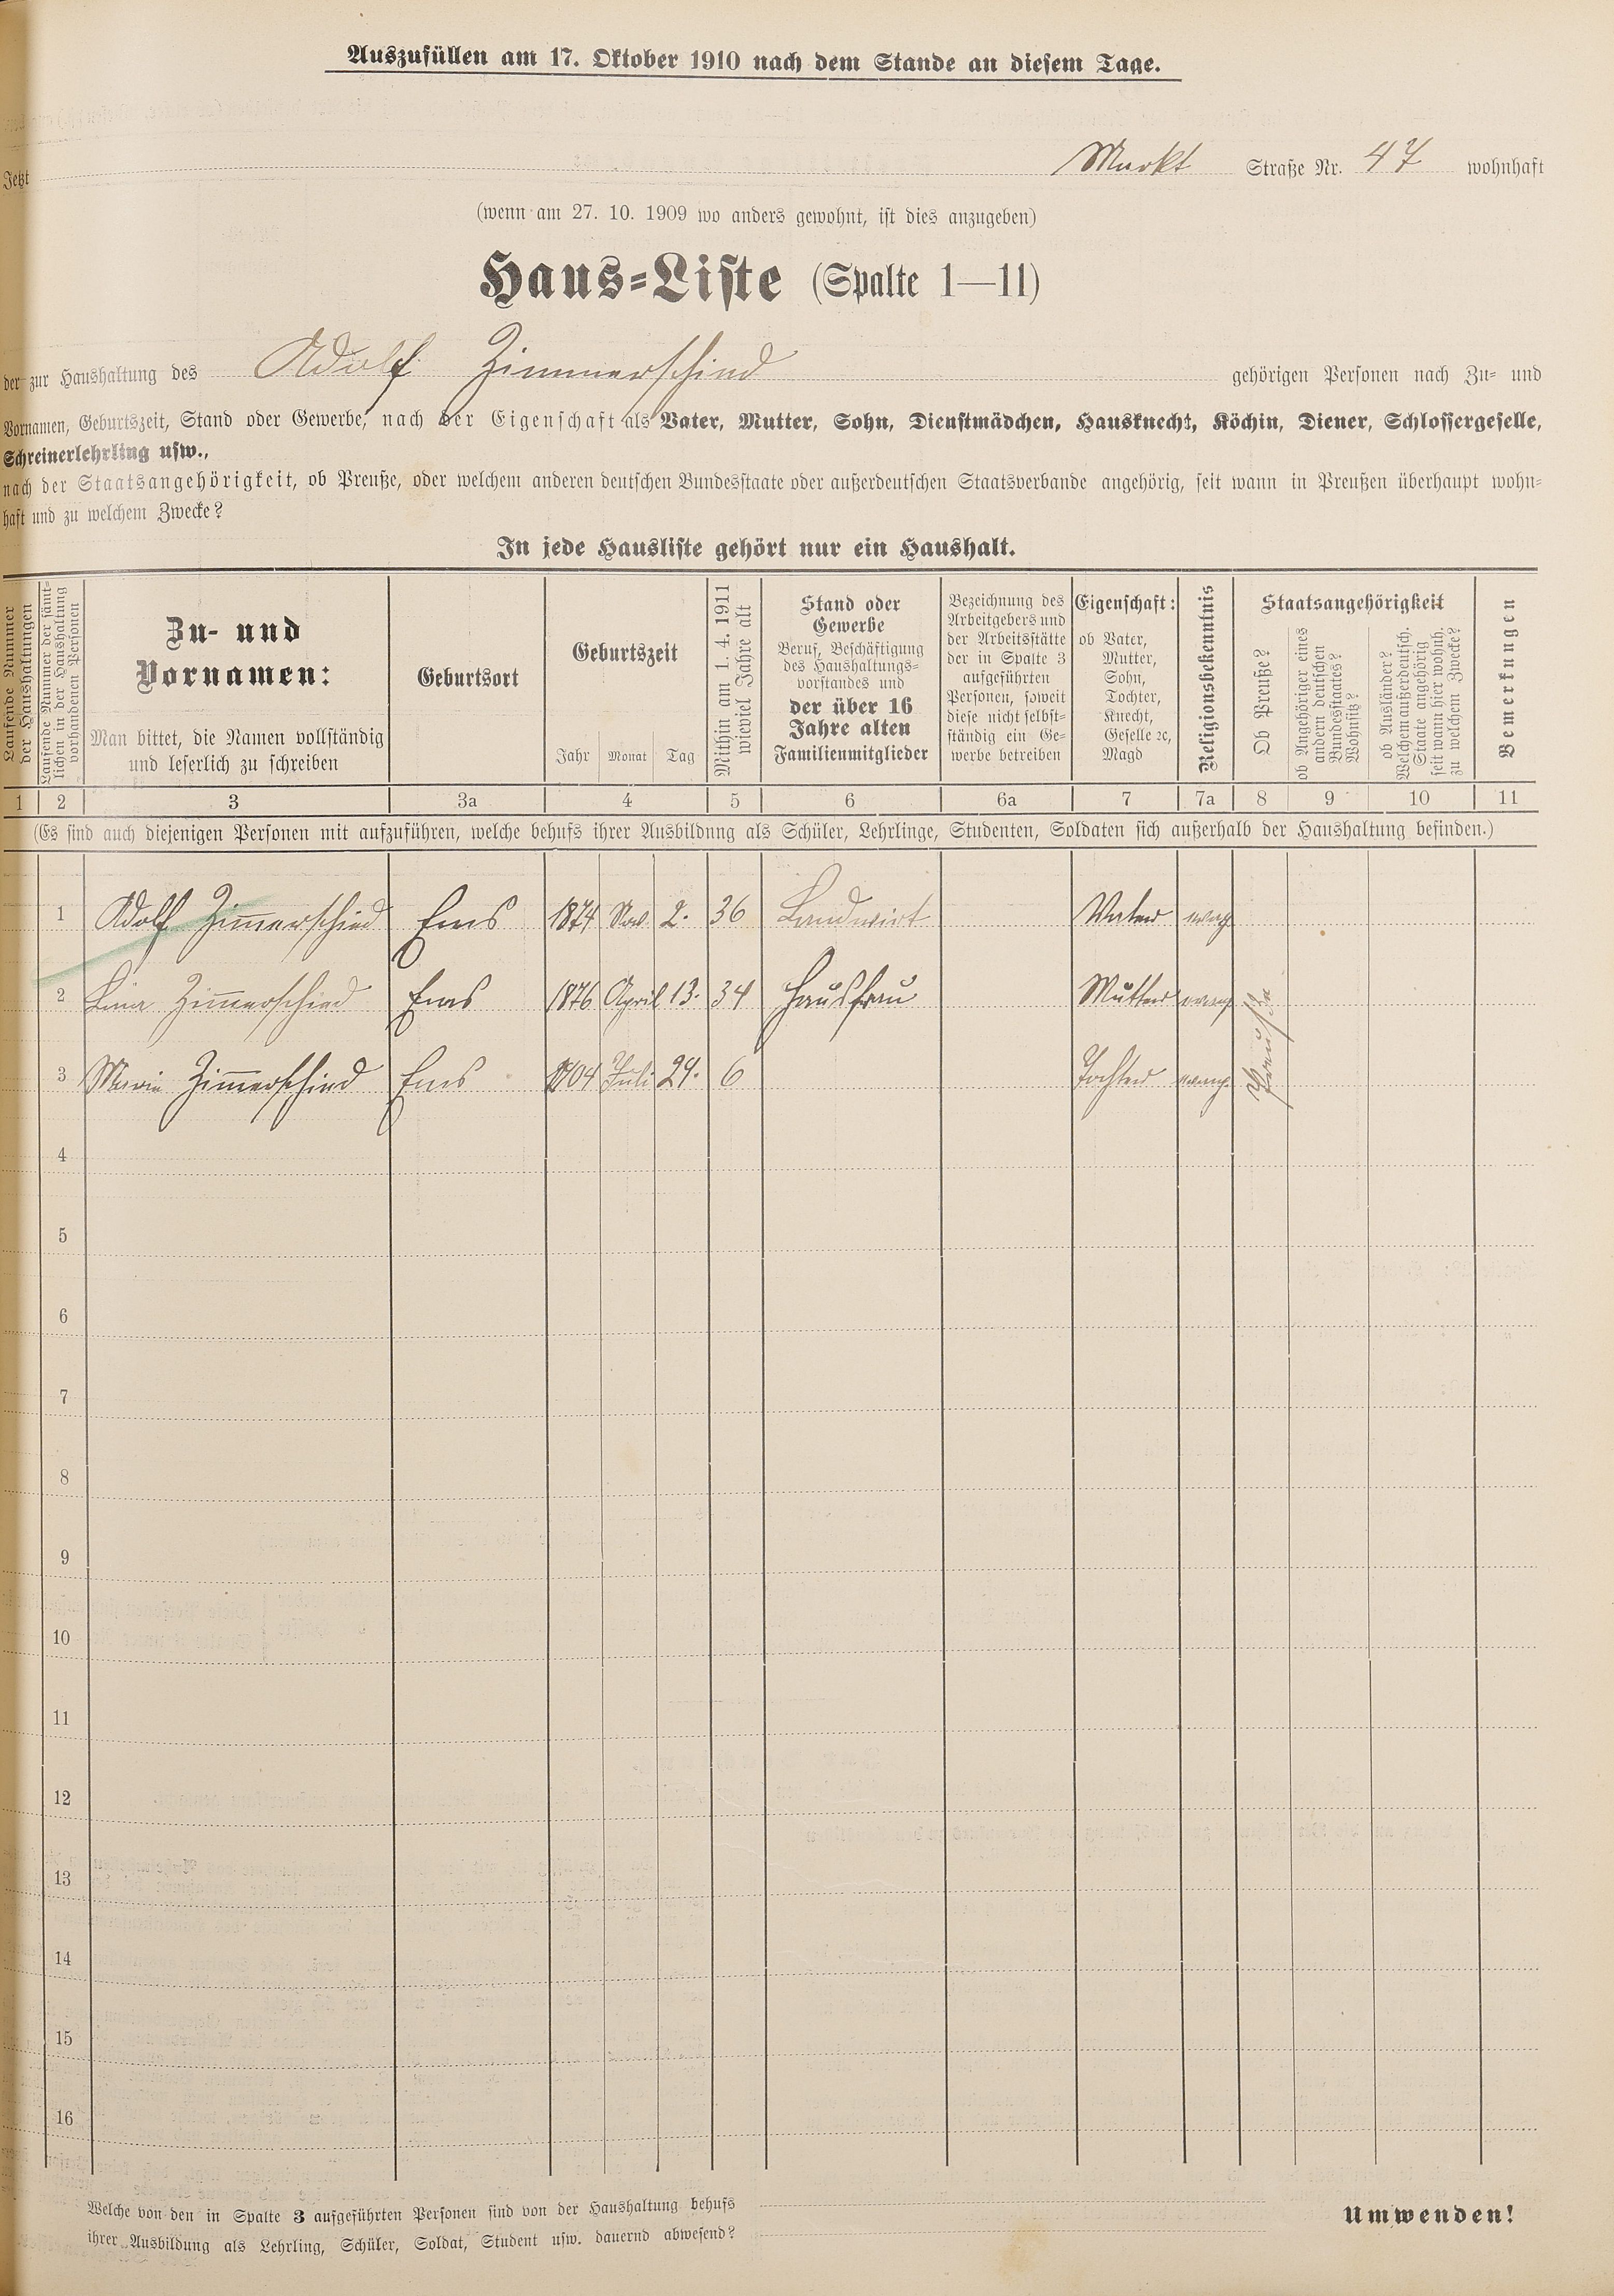 Auszufüllen am 17. Oktober 1910 nach dem Stande an diesem Tage.
Jetzt Markt Straße Nr. 47 wohnhaft
(wenn am 27. 10. 1909 wo anders gewohnt, ist dies anzugeben)
Haus-Liste (Spalte 1—11)
der zur Haushaltung des Adolf Zimmerschied gehörigen Personen nach Zu- und
Vornamen, Geburtszeit, Stand oder Gewerbe, nach der Eigenschaft als Vater, Mutter, Sohn, Dienstmädchen, Hausknecht, Köchin, Diener, Schlossergeselle,
Schreinerlehrling usw.,
nach der Staatsangehörigkeit, ob Preuße, oder welchem anderen deutschen Bundesstaate oder außerdeutschen Staatsverbande angehörig, seit wann in Preußen überhaupt wohn-
haft und zu welchem Zwecke?
In jede Hausliste gehört nur ein Haushalt.
Laufende Nummer
der Haushaltungen
Laufende Nummer der sämt-
lichen in der Haushaltung
vorhandenen Personen
Zu- und
Vornamen:
Man bittet, die Namen vollständig
und leserlich zu schreiben
Geburtsort
Geburtszeit
Jahr Monat Tag
Mithin am 1. 4. 1911
wieviel Jahre alt
Stand oder
Gewerbe
Beruf, Beschäftigung
des Haushaltungs-
vorstandes und
der über 16
Jahre alten
Familienmitglieder
Bezeichnung des
Arbeitgebers und
der Arbeitsstätte
der in Spalte 3
aufgeführten
Personen, soweit
diese nicht selbst-
ständig ein Ge-
werbe betreiben
Eigenschaft:
ob Vater,
Mutter,
Sohn,
Tochter,
Knecht,
Geselle ꝛc,
Magd
Religionsbekenntnis
Staatsangehörigkeit
Ob Preuße?
ob Angehöriger eines
andern deutschen
Bundesstaates?
Wohnsitz?
ob Ausländer?
Welchem außerdeutsch.
Staate angehörig
seit wann hier wohnh.
zu welchem Zwecke?
Bemerkungen
1 2 3 3a 4 5 6 6a 7 7a 8 9 10 11
(Es sind auch diejenigen Personen mit aufzuführen, welche behufs ihrer Ausbildung als Schüler, Lehrlinge, Studenten, Soldaten sich außerhalb der Haushaltung befinden.)
1 Adolf Zim̅erschied Ems 1874 Nov. 2. 36 Landwirt Vater evang.
2 Lina Zim̅erschied Ems 1876 April 13. 34 Hausfrau Mutter evang.
3 Marie Zim̅erschied Ems 1904 Juli 24. 6 Tochter evang.
Preuße
4
5
6
7
8
9
10
11
12
13
14
15
16
Welche von den in Spalte 3 aufgeführten Personen sind von der Haushaltung behufs
ihrer Ausbildung als Lehrling, Schüler, Soldat, Student usw. dauernd abwesend?
Umwenden!